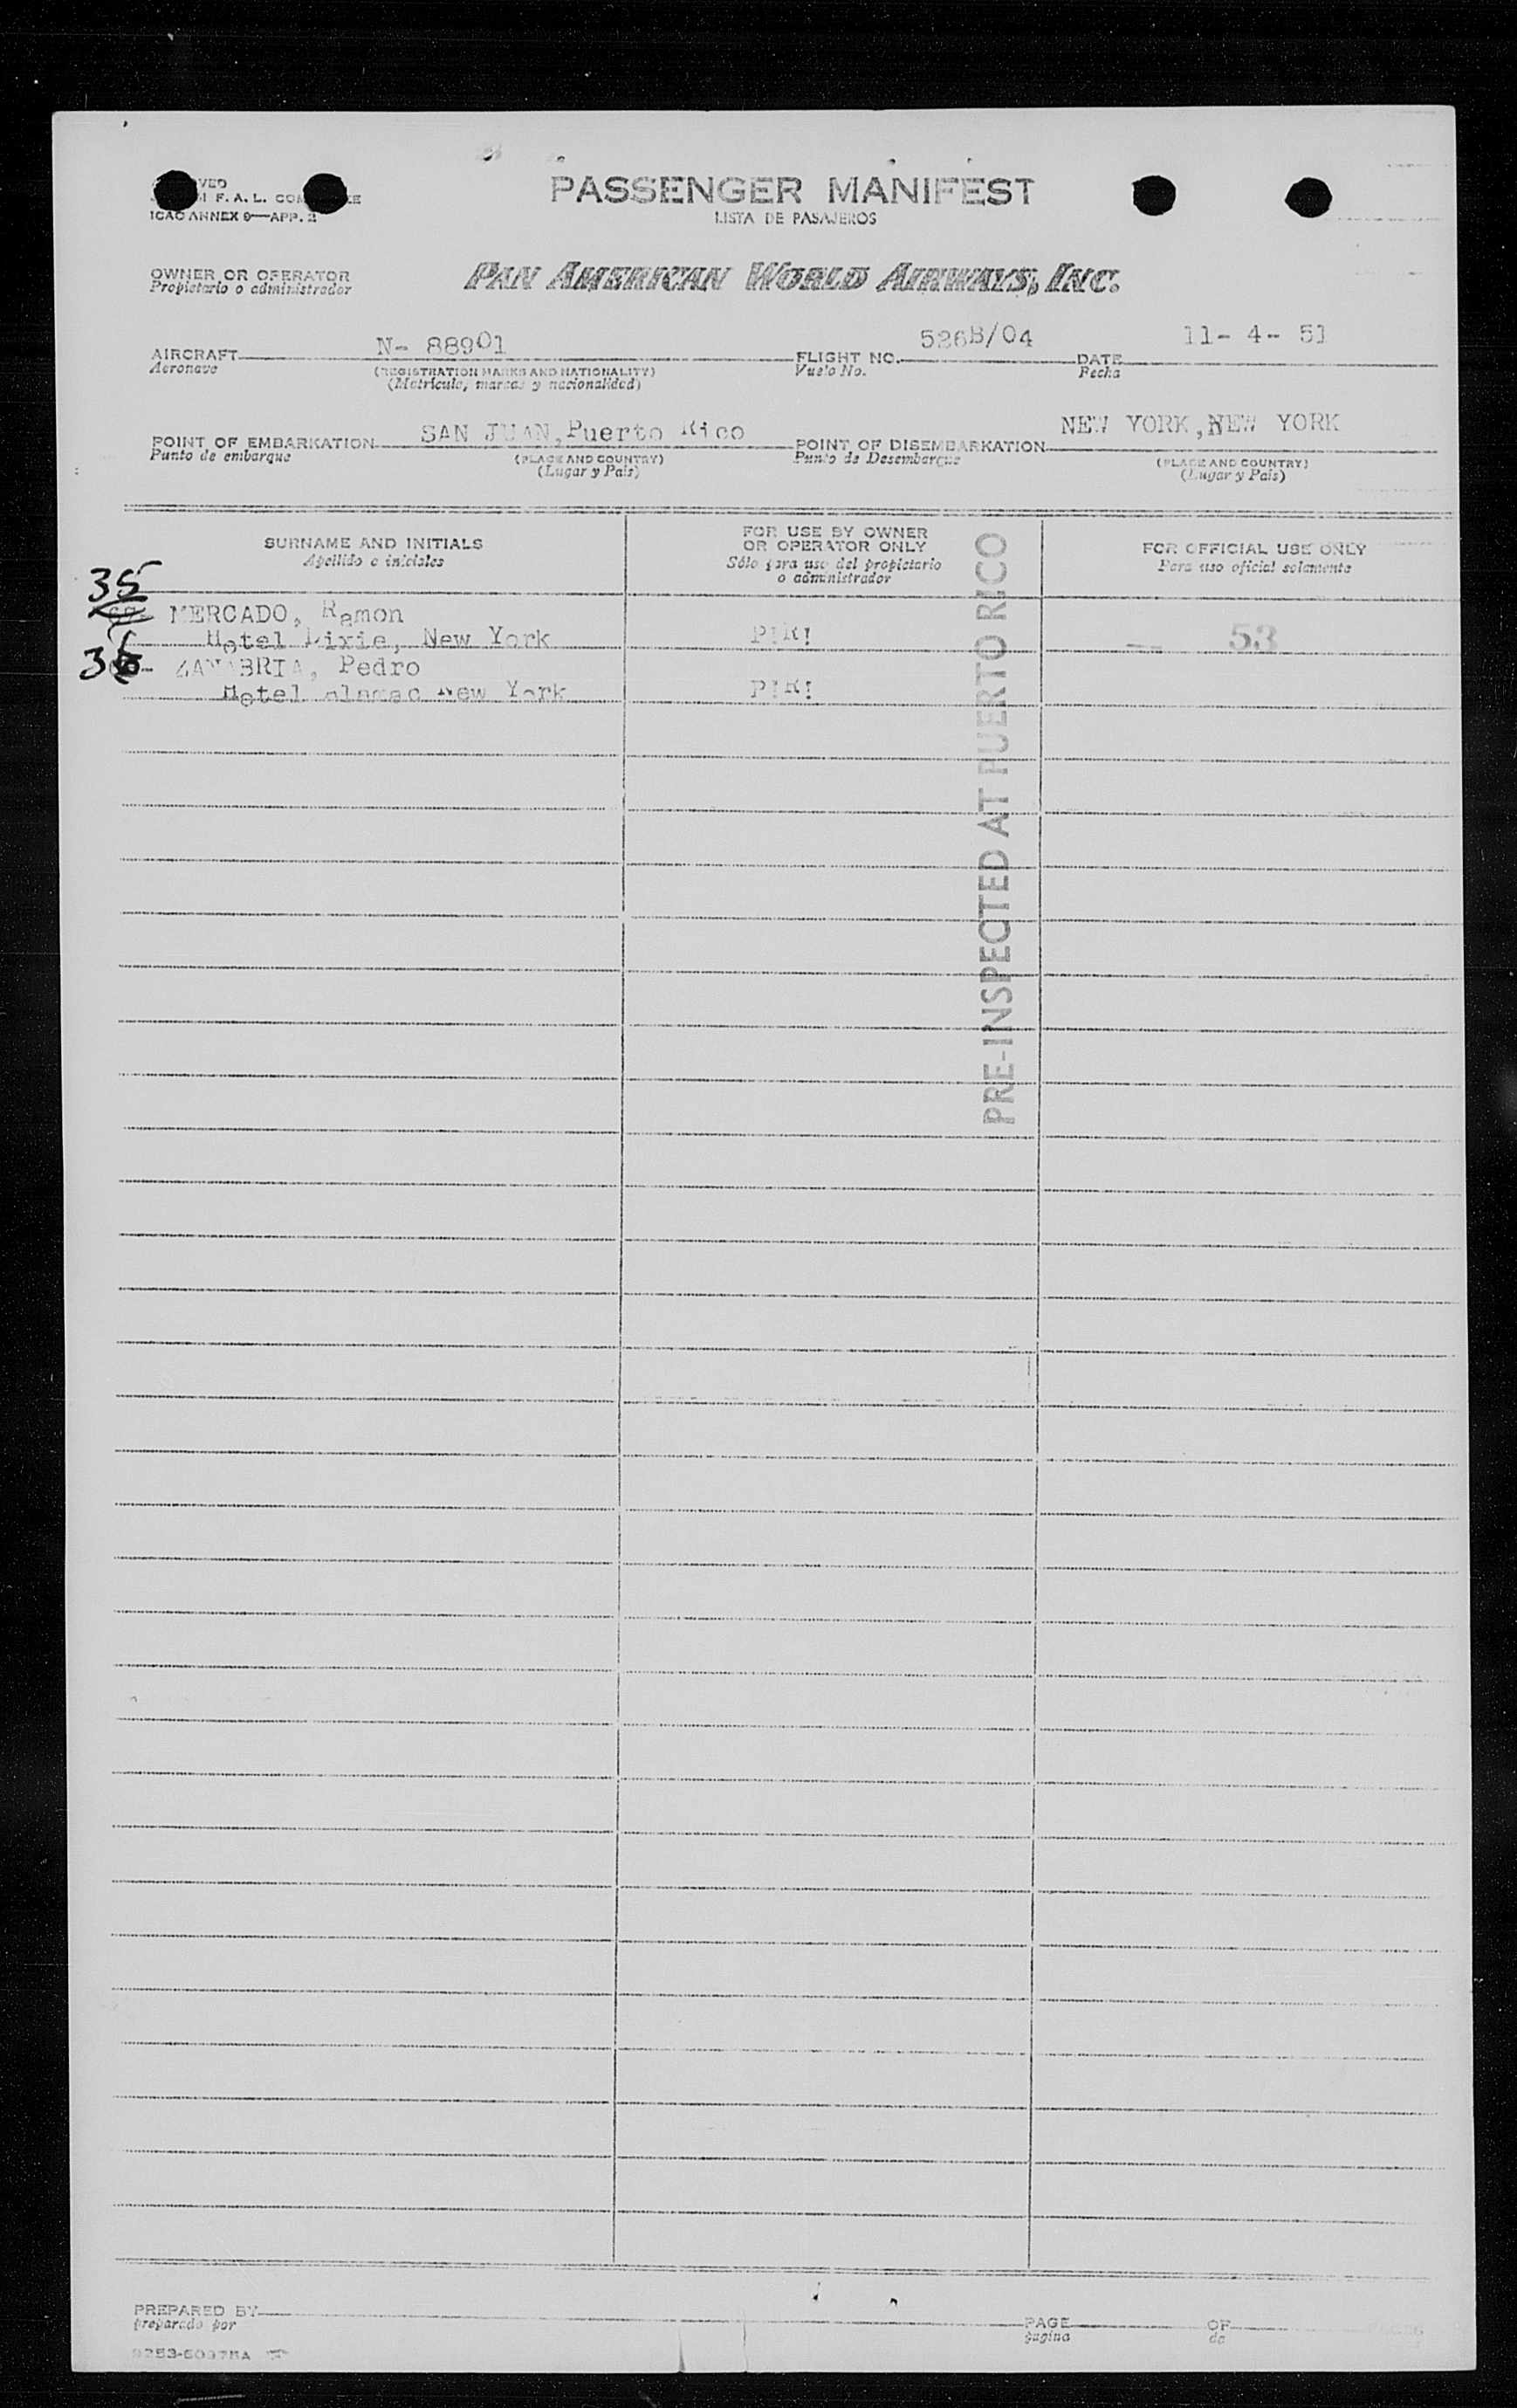 PASSENGER MANIFEST
LISTA DE PASAJEROS
F. A. L.
ICAO ANNEX 9—APP. 2
OWNER OR OPERATOR
Propietario o administrador
PAN AMERICAN WORLD AIRWAYS, INC.
AIRCRAFT N- 88901 FLIGHT NO. 526B/04 DATE 11- 4- 51
Aeronave (REGISTRATION MARKS AND NATIONALITY) Vuelo No. Fecha
(Matrícula, marcas y nacionalidad)
POINT OF EMBARKATION SAN JUAN, Puerto Rico POINT OF DISEMBARKATION NEW YORK, NEW YORK
Punto de embarque (PLACE AND COUNTRY) Punto de Desembarque (PLACE AND COUNTRY)
(Lugar y País) (Lugar y País)
SURNAME AND INITIALS
Apellido e iniciales
FOR USE BY OWNER
OR OPERATOR ONLY
Sólo para uso del propietario
o administrador
FOR OFFICIAL USE ONLY
Para uso oficial solamente
35 MERCADO, Ramon
Hotel Dixie, New York P!R! 53
36 ZANABRIA, Pedro
Hotel Alamac New York P!R!
PRE-INSPECTED AT PUERTO RICO
PREPARED BY PAGE OF
preparado por página de